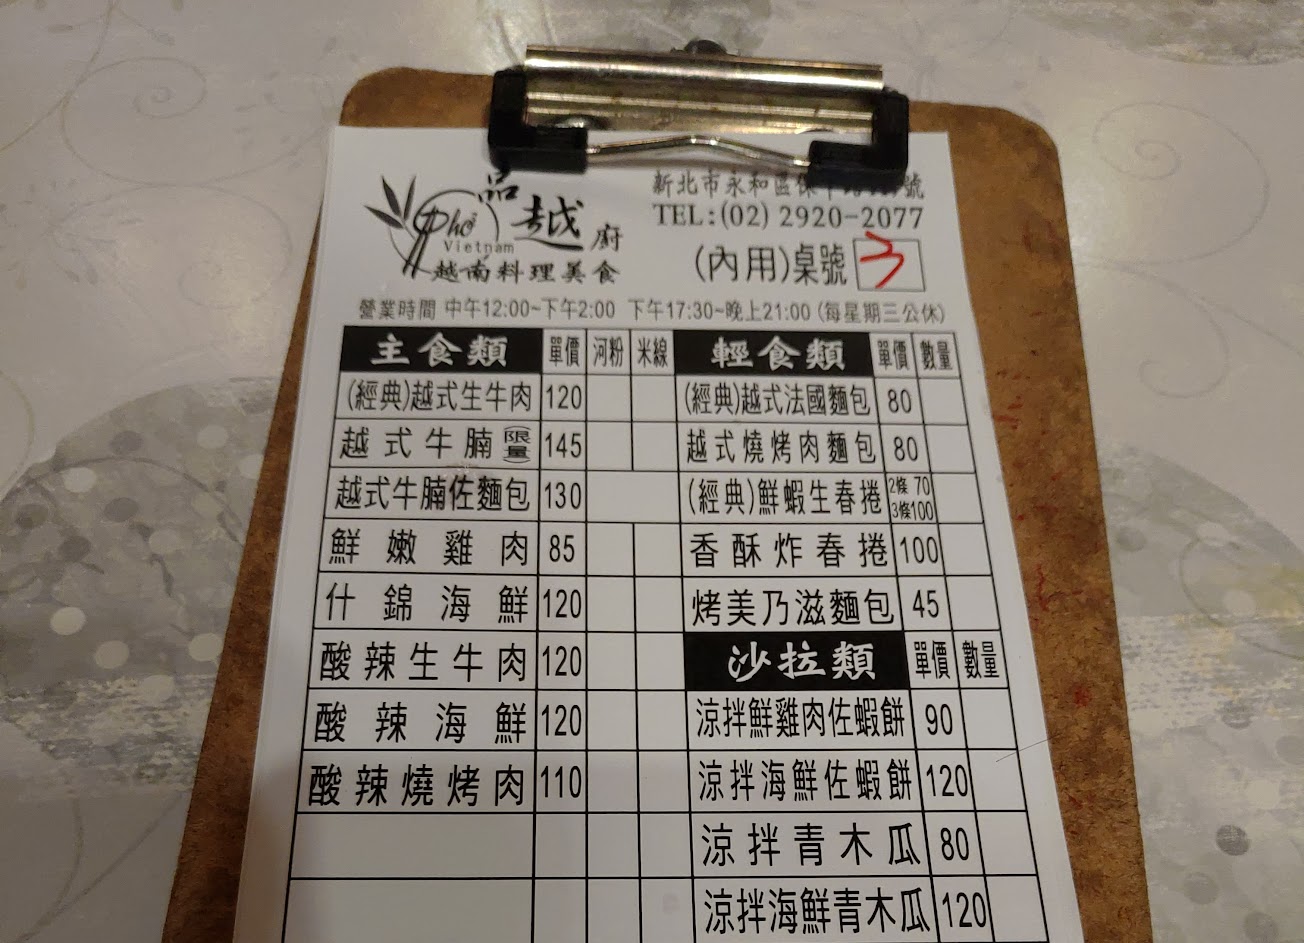 Phở
Vietnam
品越廚
越南料理美食
新北市永和區保
TEL:(02) 2920-2077
(內用)桌號 3
營業時間 中午12:00~下午2:00 下午17:30~晚上21:00 (每星期三公休)
主食類 單價 河粉 米線
(經典)越式生牛肉 120
越式牛腩(限量) 145
越式牛腩佐麵包 130
鮮嫩雞肉 85
什錦海鮮 120
酸辣生牛肉 120
酸辣海鮮 120
酸辣燒烤肉 110
輕食類 單價 數量
(經典)越式法國麵包 80
越式燒烤肉麵包 80
(經典)鮮蝦生春捲 2條 70
3條100
香酥炸春捲 100
烤美乃滋麵包 45
沙拉類 單價 數量
涼拌鮮雞肉佐蝦餅 90
涼拌海鮮佐蝦餅 120
涼拌青木瓜 80
涼拌海鮮青木瓜 120